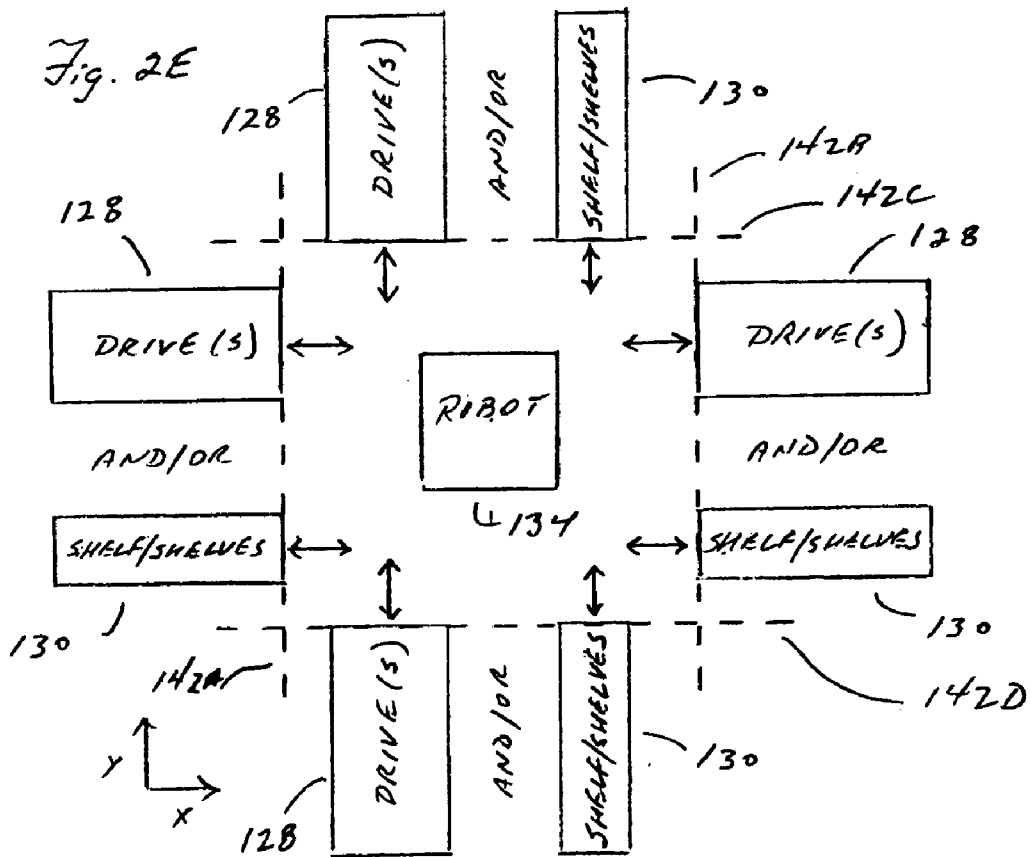 Fig. 2E
128
DRIVE(S)
AND/OR
SHELF/SHELVES
130
142B
142C
128
128
DRIVE(S)
DRIVE(S)
ROBOT
134
AND/OR
AND/OR
SHELF/SHELVES
SHELF/SHELVES
130
130
142A
142D
DRIVE(S)
AND/OR
SHELF/SHELVES
130
128
Y
X